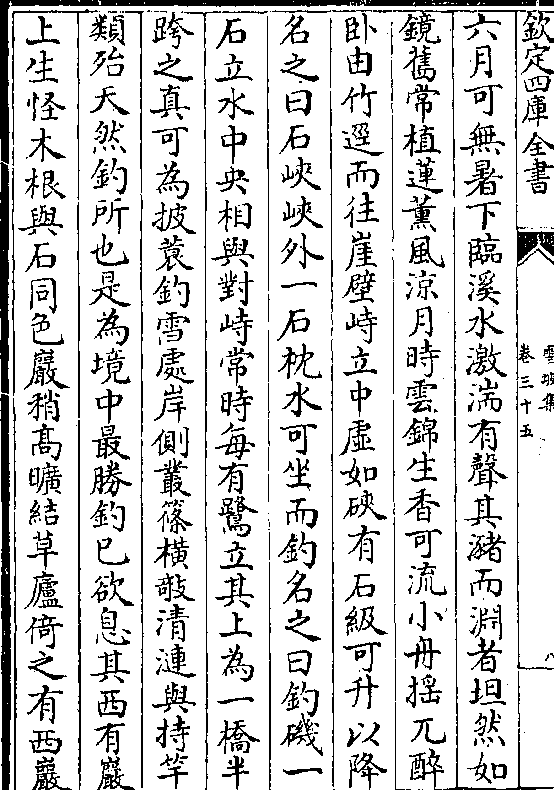 欽定四庫全書
雪坡集
卷三十五
八
六月可無暑下臨溪水激湍有聲其瀦而淵者坦然如
鏡舊常植蓮薰風涼月時雲錦生香可流小舟揺兀醉
卧由竹逕而往崖壁峙立中虚如硤有石級可升以降
名之曰石峽峽外一石枕水可坐而釣名之曰釣磯一
石立水中央相與對峙常時每有鷺立其上為一橋半
跨之真可為披蓑釣雪處岸側叢篠橫敧清漣與持竿
類殆天然釣所也是為境中最勝釣已欲息其西有巖
上生怪木根與石同色巖稍髙曠結草廬倚之有西巖